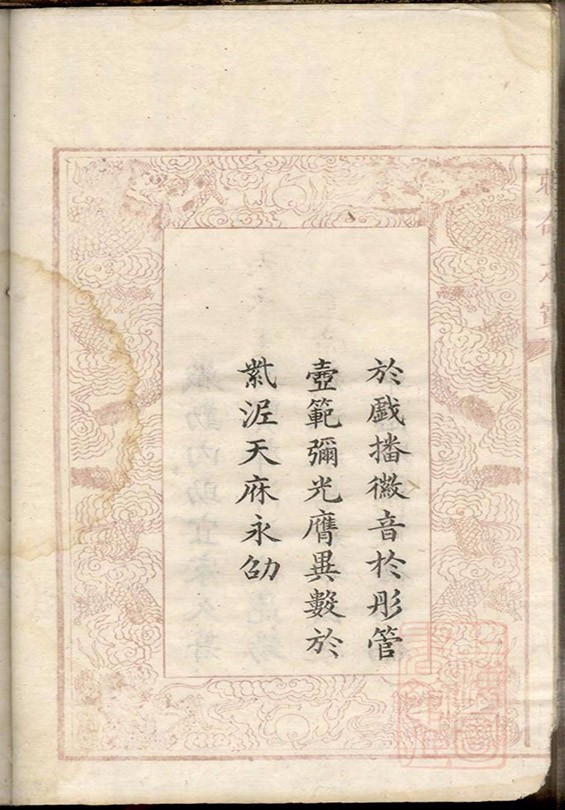 於戲播徽音於彤管
壼範彌光膺異數於
紫泥天庥永劭